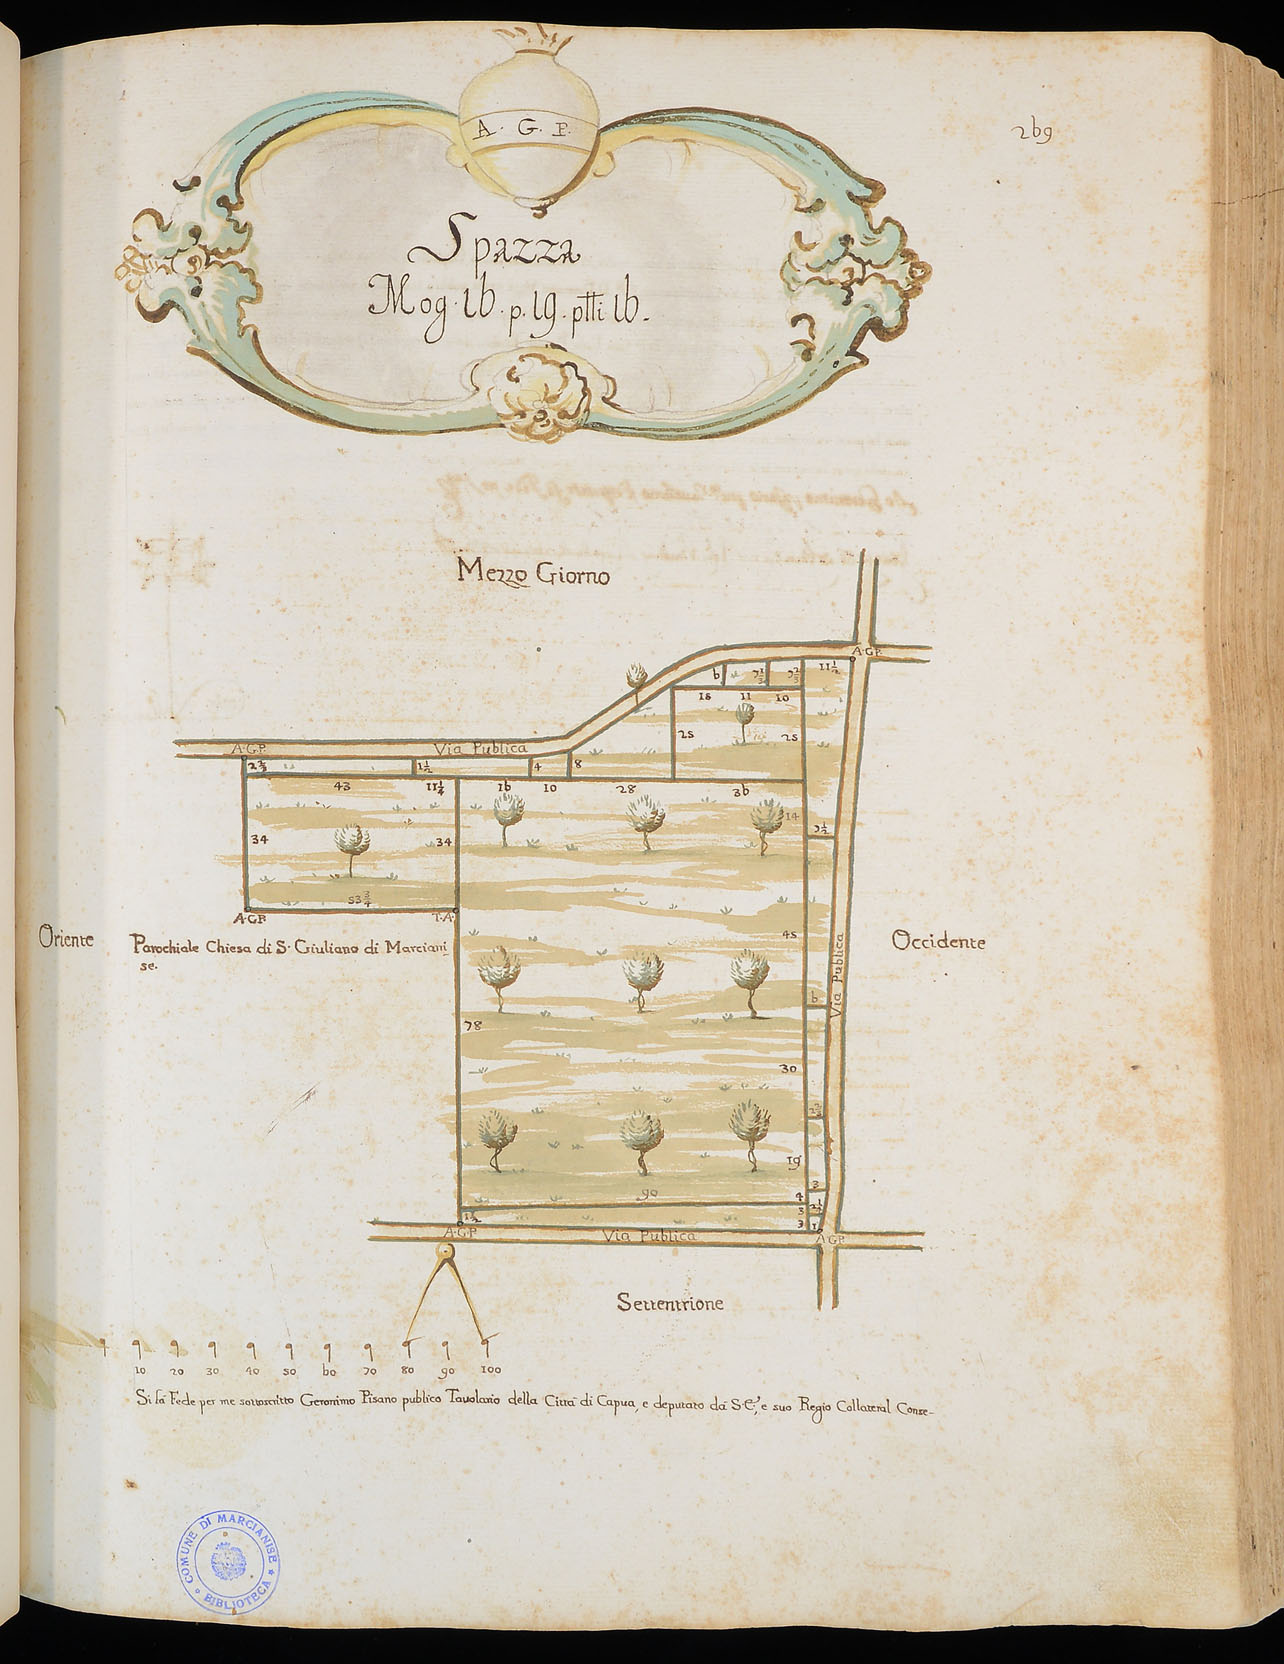 A. G. P.
269
Spazza
Mog. 16. p. 19. ptti 16.
Mezzo Giorno
A.G.P.
6 7⅓ 7⅔ 11½
18 11 10
25 25
A.G.P. Via Publica
2⅔ 1½ 4 8
43 11¼ 16 10 28 36
14
34 34
7½
53¾
A.G.P. T.A.
Oriente
Parochiale Chiesa di S. Giuliano di Marciani
se.
45
Occidente
Via Publica
6
78
30
19
90
4 3
3 2½
1½ 3 1
A.G.P. Via Publica A.G.P.
Settentrione
10 20 30 40 50 60 70 80 90 100
Si fà Fede per me sottoscritto Geronimo Pisano publico Tavolario della Città di Capua, e deputato da S.E., e suo Regio Collateral Conse-
COMUNE DI MARCIANISE
BIBLIOTECA